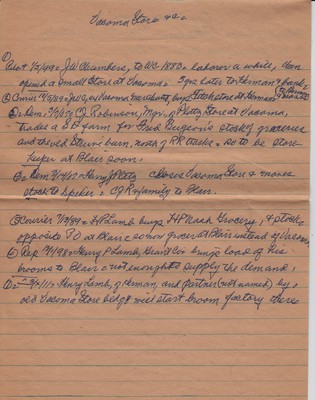 Vacoma Store &c.
① Pilot 1/2/49 = J.W. Chambers, to W.C. 1880 = laborer a while, then
opened a Small Store at Vacoma. 3 yrs later to Herman & bank,
② Courier 12/5/89 = J.W.C., ex Vacoma merchant, buys Fitch store at Herman
③ Dem. C.J. Robinson, Mgr. of Platz Store at Vacoma,
trades a SD farm for Fred stock of groceries
and the old Struve barn, north of RR tracks = so to be store
keeper at Blair soon.
Dem Henry J. Platz closes Vacoma Store & moves
stock to Spiker = CJR & family to Blair.
Courier H.P. Lamb buys HP Nash Grocery, & stock
opposite P.O. at Blair = so now grocer at Blair instead of Vacoma,
Rep Henry P Lamb, Grant Co. brings load of his
brooms to Blair = not enough to supply the demand,
Henry Lamb, of Herman, and partner (not named) buy
old Vacoma Store bldg & will start broom factory there